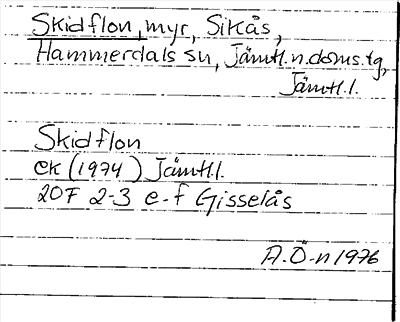 Skidflon, myr, Sikås,
Hammerdals sn, Jämtl.n.doms.tg,
Jämtl.l.
Skidflon
ek (1974) Jämtl.l.
20F 2-3 e-f Gisselås
A.Ö-n 1976